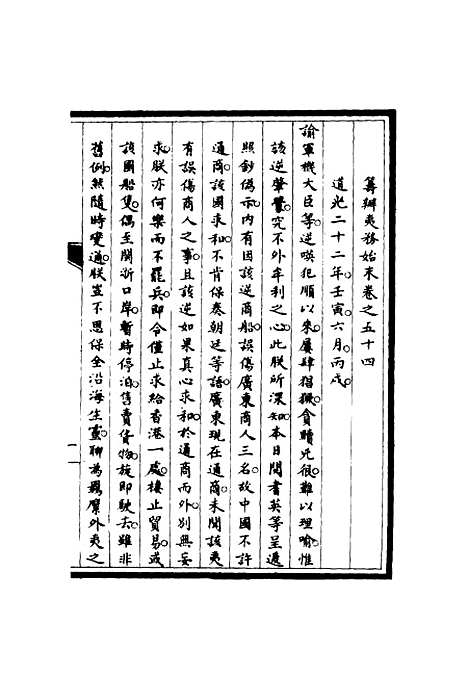 籌辦夷務始末卷之五十四
道光二十二年壬寅六月丙戌
諭軍機大臣等逆嘆犯順以來屢肆猖獗貪贖兇很難以理喻惟
該逆肇釁究不外牟利之心此朕所深知本日閱耆英等呈遞
照鈔偽示內有因該逆商船誤傷廣東商人三名故中國不許
通商該國求和不肯保奏朝廷等語廣東現在通商未聞該夷
有誤傷商人之事且該逆如果真心求和於通商而外別無妄
求朕亦何樂而不罷兵即令僅止求給香港一處棲止貿易或
該國船隻偶至閩浙口岸暫時停泊售賣貨物旋即駛去雖非
舊例然隨時變通朕豈不思保全沿海生靈聊為羈縻外夷之
一